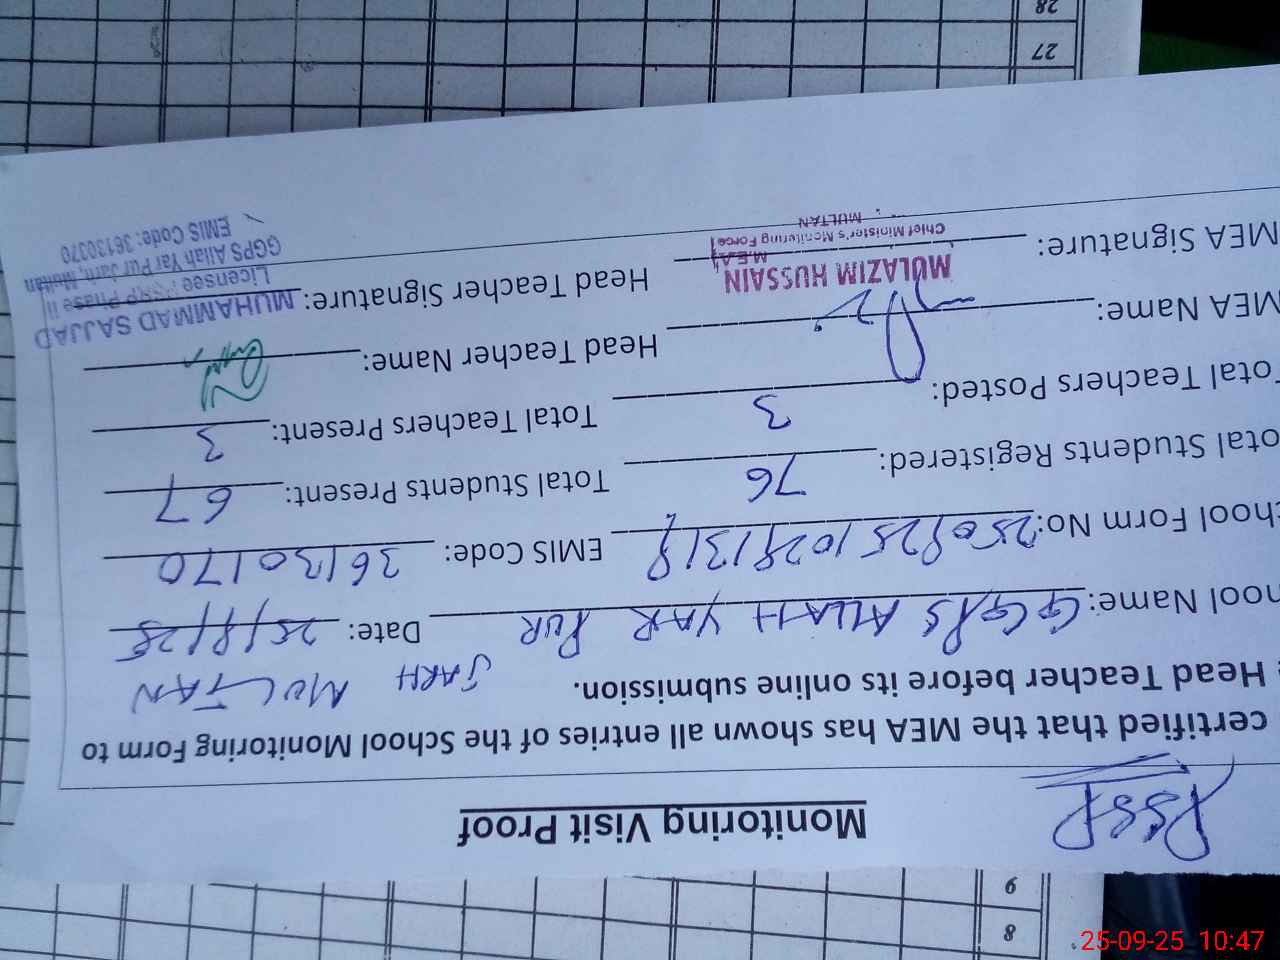 PSSP
Monitoring Visit Proof
certified that the MEA has shown all entries of the School Monitoring Form to
Head Teacher before its online submission.
JARH MULTAN
hool Name: GGPS ALLAH YAR PUR Date: 25/8/25
hool Form No: EMIS Code: 36130170
otal Students Registered: 76 Total Students Present: 67
Total Teachers Posted: 3 Total Teachers Present: 3
MEA Name: Head Teacher Name:
MULAZIM HUSSAIN
M.E.A
Chief Minister's Monitoring Force
MULTAN
MEA Signature: Head Teacher Signature:
MUHAMMAD SAJJAD
Licensee PSRP Phase ii
GGPS Allah Yar Pur Jarh, Multan
EMIS Code: 36130370
8
9
27
28
25-09-25 10:47